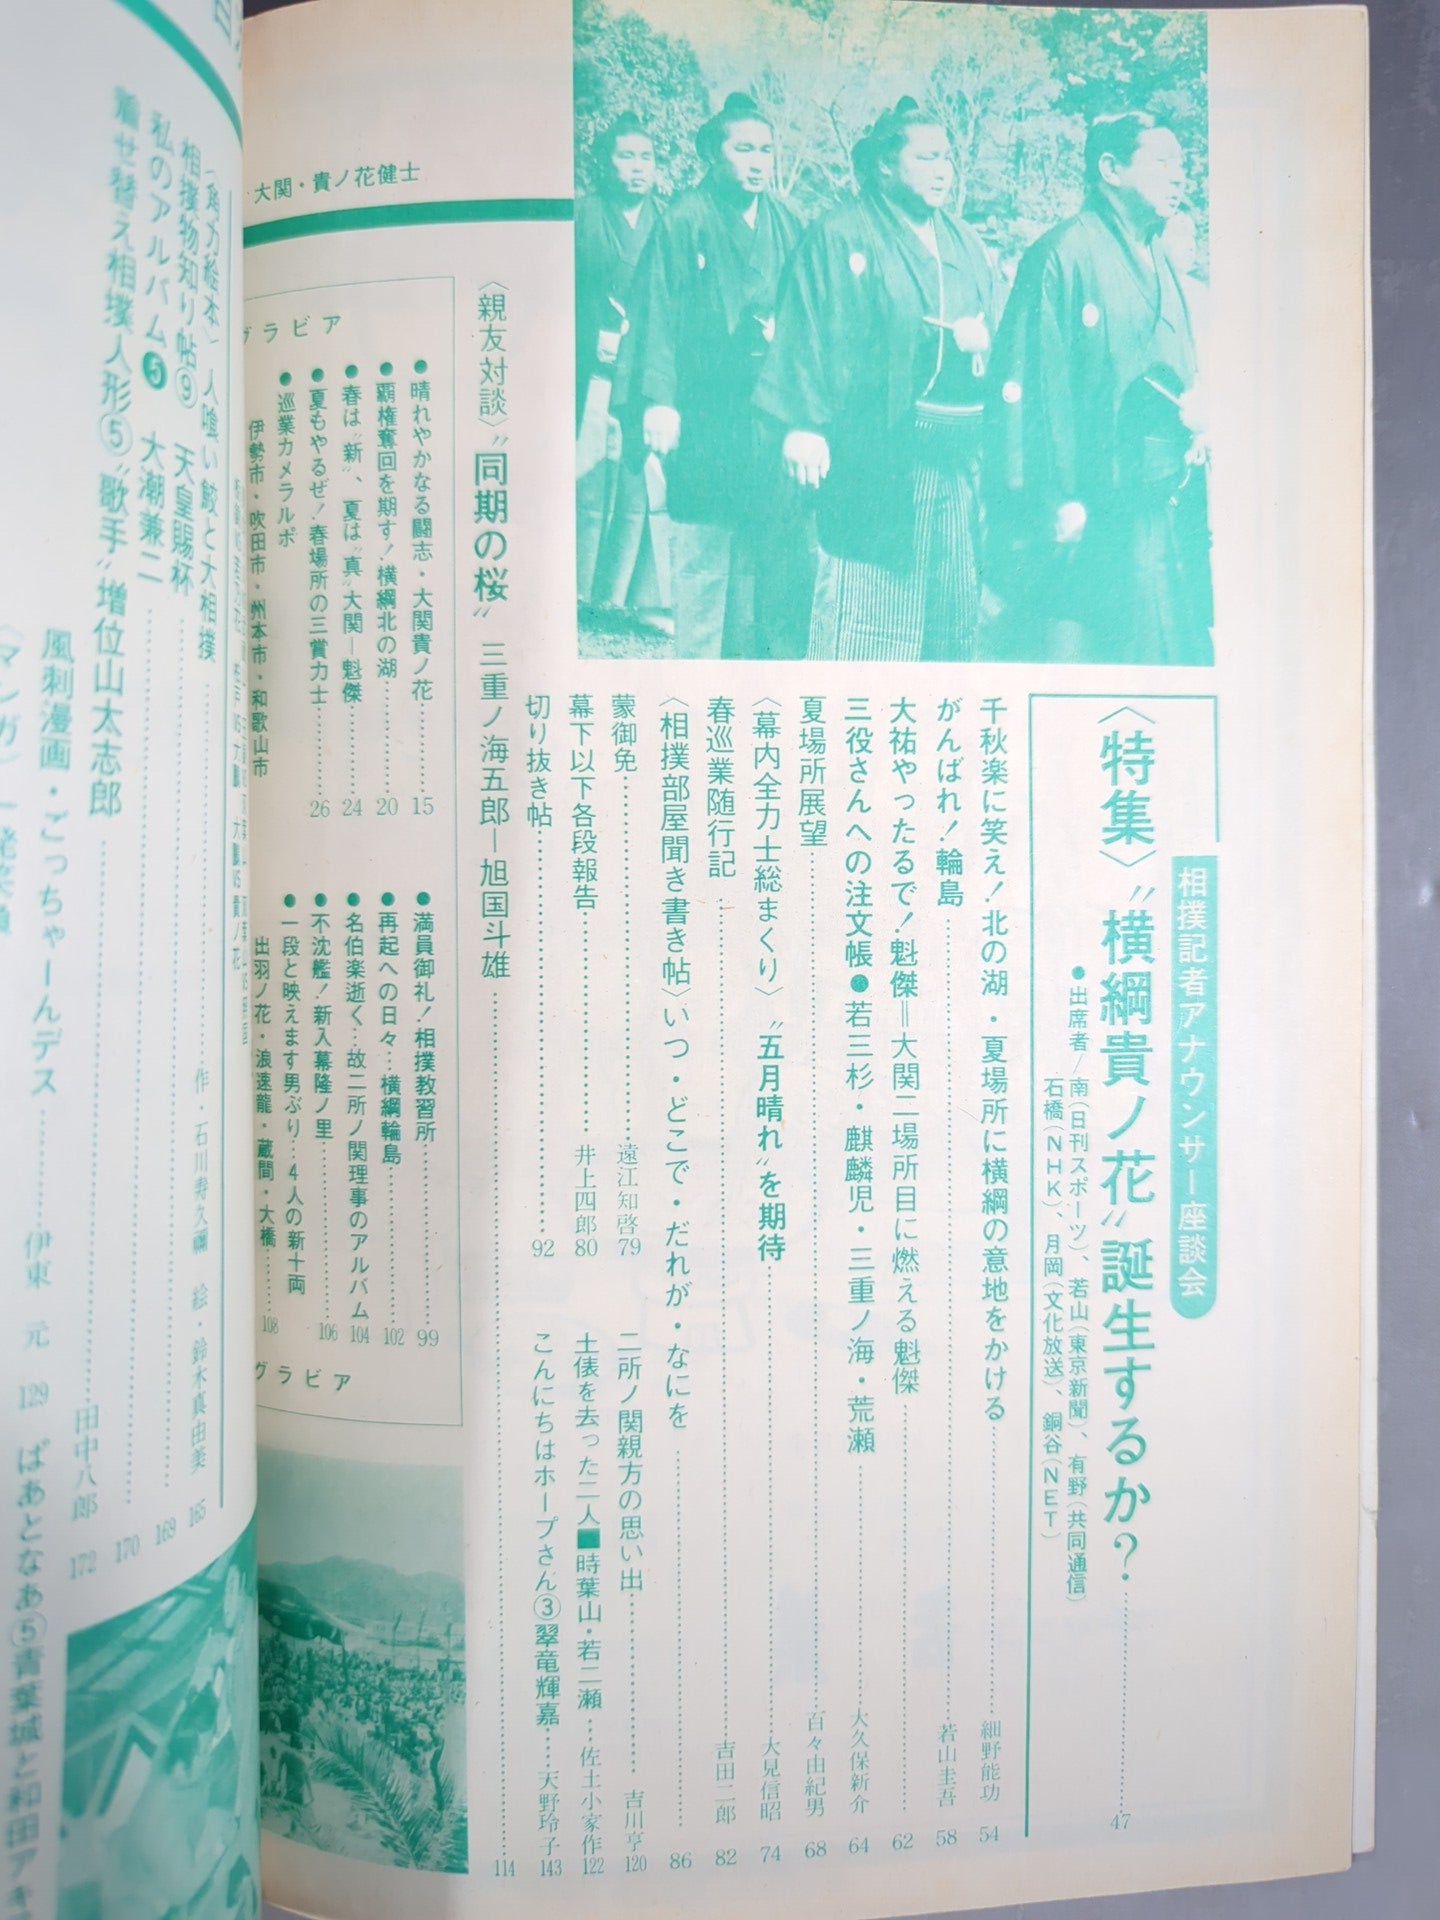 相撲記者アナウンサー座談会
〈特集〉〝横綱貴ノ花〟誕生するか？……47
●出席者／南(日刊スポーツ)、若山(東京新聞)、有野(共同通信)
石橋(NHK)、月岡(文化放送)、銅谷(NET)
千秋楽に笑え！北の湖・夏場所に横綱の意地をかける……細野能功 54
がんばれ！輪島……若山圭吾 58
大祐やったるで！魁傑＝大関二場所目に燃える魁傑……62
三役さんへの注文帳●若三杉・麒麟児・三重ノ海・荒瀬……大久保新介 64
夏場所展望……百々由紀男 68
〈幕内全力士総まくり〉〝五月晴れ〟を期待……大見信昭 74
春巡業随行記……吉田二郎 82
〈相撲部屋聞き書き帖〉いつ・どこで・だれが・なにを……86
蒙御免……遠江知啓 79
二所ノ関親方の思い出……吉川亨 120
幕下以下各段報告……井上四郎 80
土俵を去った二人■時葉山・若二瀬……佐土小家作 122
切り抜き帖……92
こんにちはホープさん③翠竜輝嘉……天野玲子 143
〈親友対談〉〝同期の桜〟 三重ノ海五郎―旭国斗雄……114
大関・貴ノ花健士
グラビア
●晴れやかなる闘志・大関貴ノ花……15
●覇権奪回を期す！横綱北の湖……20
●春は〝新〟、夏は〝真〟大関―魁傑……24
●夏もやるぜ！春場所の三賞力士……26
●巡業カメラルポ
伊勢市・吹田市・州本市・和歌山市
●満員御礼！相撲教習所……99
●再起への日々…横綱輪島……102
●名伯楽逝く…故二所ノ関理事のアルバム 104
●不沈艦！新入幕隆ノ里……106
●一段と映えます男ぶり…4人の新十両
出羽ノ花・浪速龍・蔵間・大橋……108
グラビア
〈角力絵本〉人喰い鮫と大相撲……作・石川寿久彌 絵・鈴木真由美 165
相撲物知り帖⑨ 天皇賜杯……169
私のアルバム❺ 大潮兼二……170
着せ替え相撲人形⑤〝歌手〟増位山太志郎……田中八郎 172
風刺漫画・ごっちゃーんデス……伊東 元 129
ばあとなあ⑤青葉城と和田アキ
〈マンガ〉